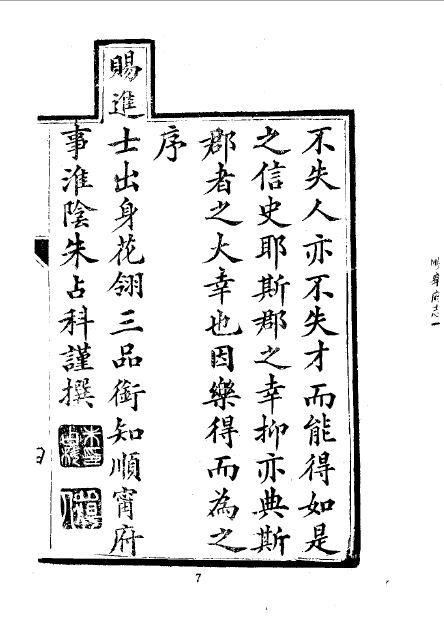 不失人亦不失才而能得如是
之信史耶斯郡之幸抑亦典斯
郡者之大幸也因樂得而為之
序
賜進士出身花翎三品銜知順甯府
事淮陰朱占科謹撰
7